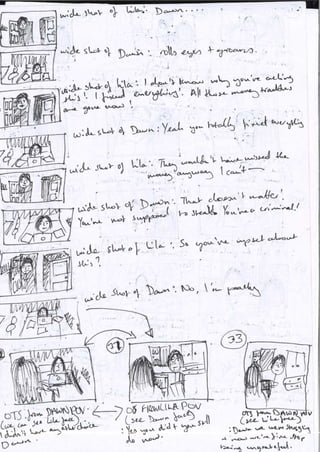 wide shot of Lila: Dawn....
wide shot of Dawn: rolls eyes + groans.
wide shot of Lila: I don't know why you're acting
this! I fixed everything! All those money troubles
are gone now!
wide shot of Dawn: Yeah you totally fixed everything
wide shot of Lila: They wouldn't have missed the
money anyway I can't—
wide shot of Dawn: That doesn't matter!
You're not supposed to steal! You're a criminal!
wide shot of Lila: So you're upset about
this?
wide shot of Dawn: No, I'm
33
OTS from DAWN POV
(we can see Lila face)
I didn't have any other choice
Dawn.
OTS FROM LILA POV
(see Dawn face)
: Yes you did & you still
do now.
OTS from DAWN POV
(see Lila face)
: Dawn we were struggling
& now we're fine stop
being ungrateful.